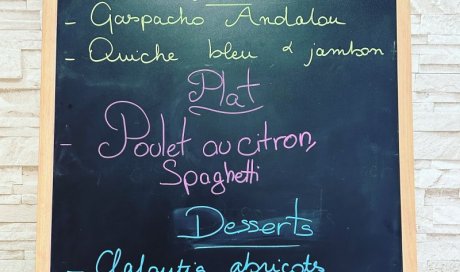 - Gaspacho Andalou
- Quiche bleu & jambon
Plat
- Poulet au citron,
Spaghetti
Desserts
- Clafoutis abricots